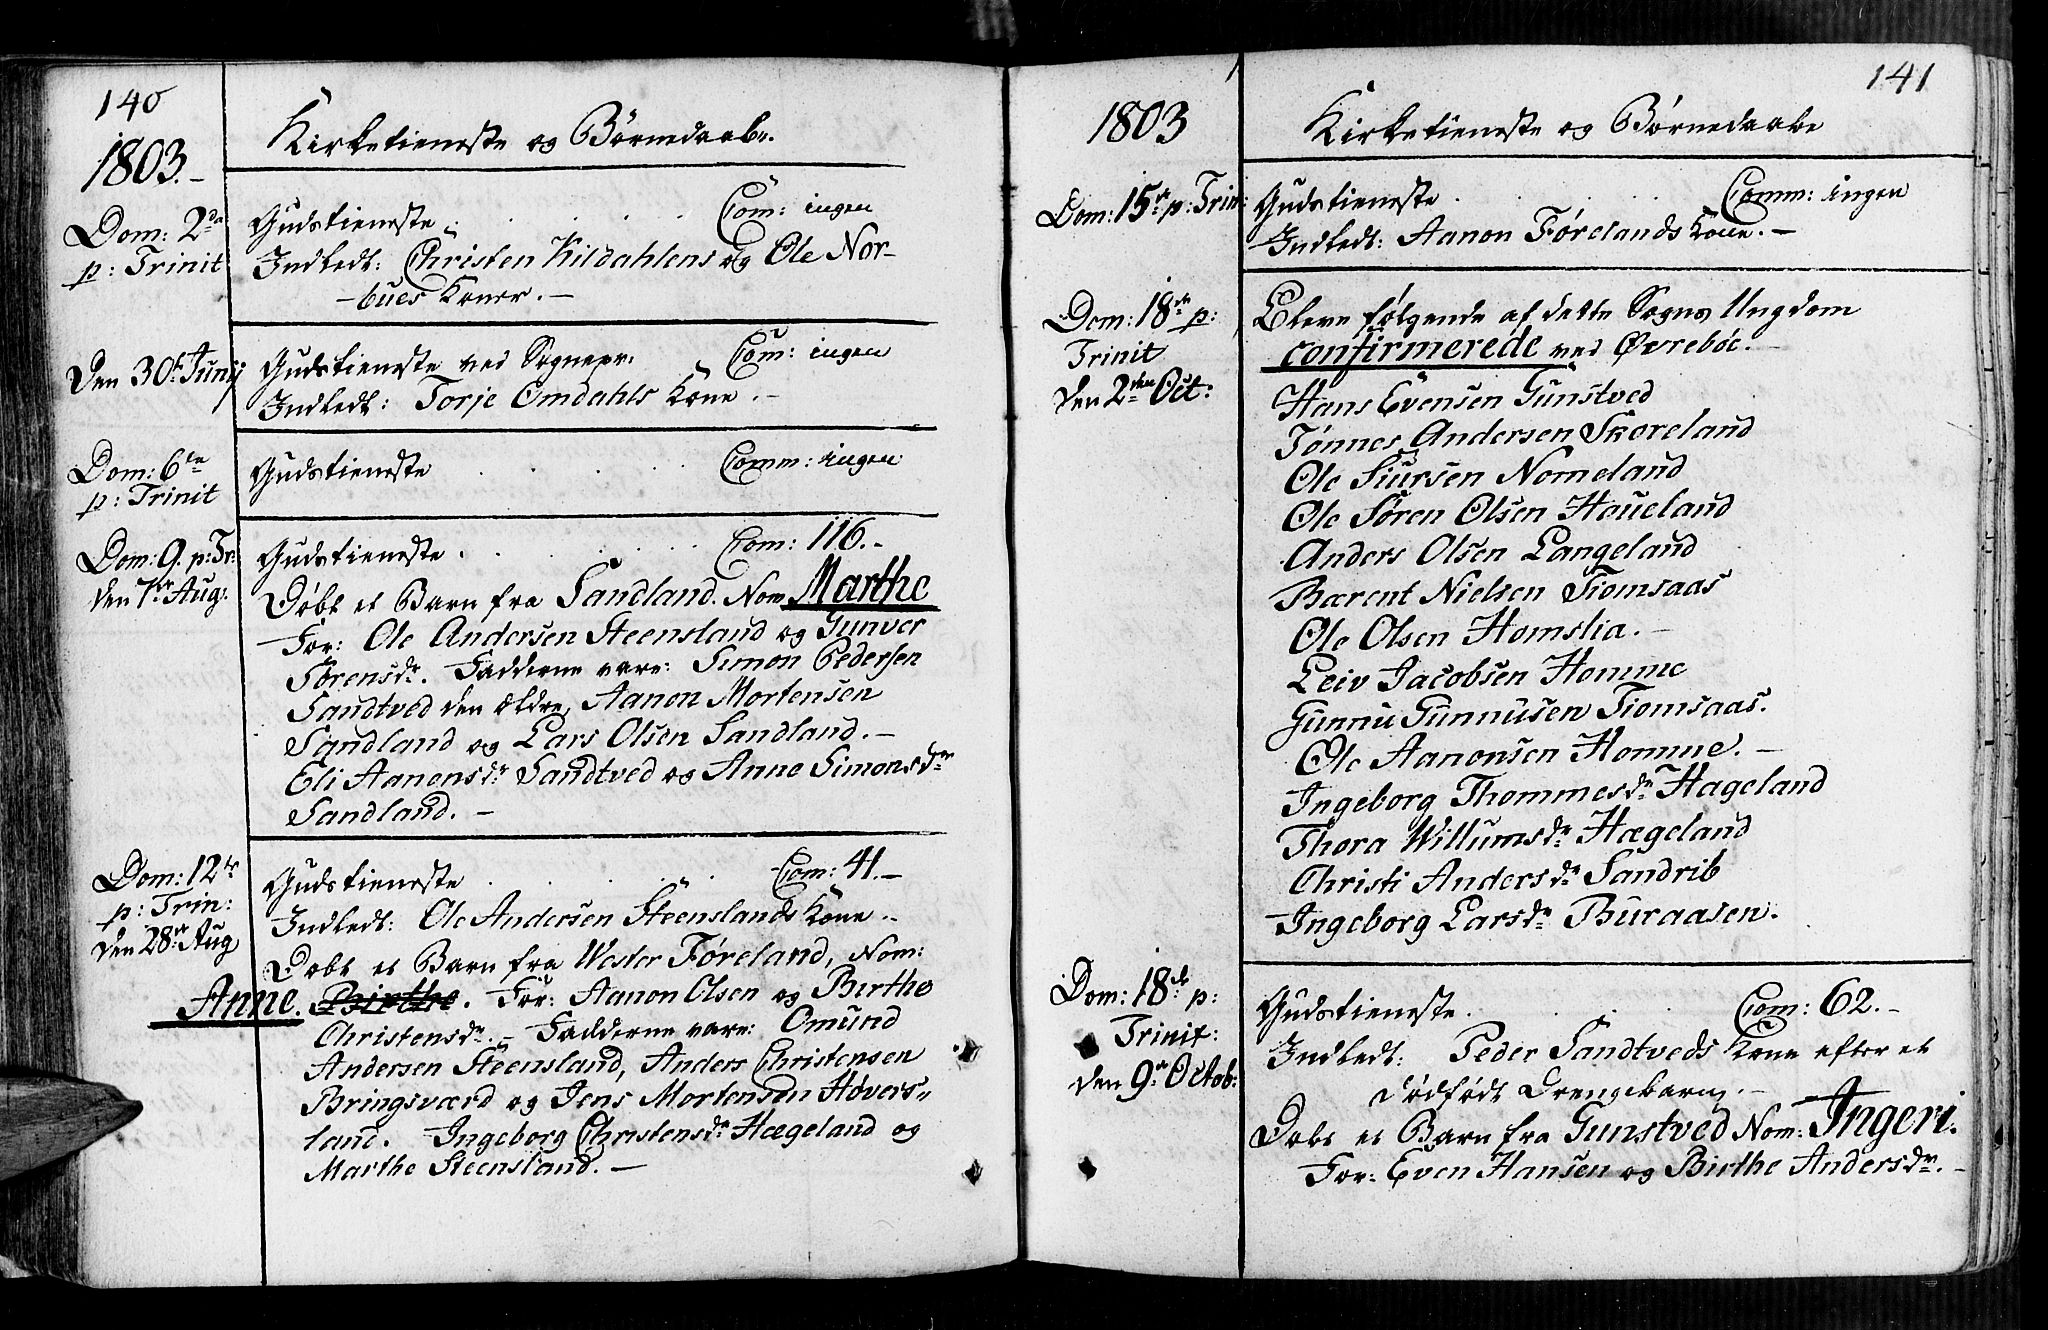 140
1803.-
Kirketieneste og Børnedaab.
Dom: 2da
p: Trinit
Gudstieneste . . . . Com: ingen
Indledt: Christen Kildahlens og Ole Nor-
-bues Koner.-
Den 30t Junij
Gudstieneste ved Sognepr. Com: ingen
Indledt: Torje Omdahls Kone.-
Dom: 6te
p: Trinit
Gudstieneste . . . . Comm: ingen
Dom: 9. p: Tr.
den 7de Aug.
Gudstieneste . . . . Com: 116.-
Døbt et Barn fra Sandland. Nom Marthe
For: Ole Andersen Steensland og Gunver
Sørensdr. Fadderne vare: Simon Pedersen
Sandtved den ældre, Aanon Mortensen
Sandland og Lars Olsen Sandland.-
Eli Aanensdr Sandtved og Anne Simonsdr
Sandland.-
Dom: 12te
p: Trin:
den 28de Aug
Gudstieneste . . . . Com: 41.-
Indledt: Ole Andersen Steenslands Kone.-
Døbt et Barn fra Wester Føreland, Nom:
Anne. Birthe. For: Aanon Olsen og Birthe
Christensdr.- Fadderne vare: Omund
Andersen Steensland, Anders Christensen
Bringsværd og Jens Mortensen Høvers-
land. Ingeborg Christensdr Hægeland og
Marthe Steensland.-
141
1803
Kirketieneste og Børnedaabe
Dom: 15de p: Trin:
Gudstieneste . . . Comm: ingen
Indledt: Aanon Førelands Kone.-
Dom: 18de p:
Trinit
den 2den Oct:
Bleve følgende af dette Sogns Ungdom
confirmerede ved Øvrebøe.-
Hans Evensen Gunstved
Tønnes Andersen Skoreland
Ole Siursen Nomeland
Ole Søren Olsen Houeland
Anders Olsen Langeland
Bærent Nielsen Tiomsaas
Ole Olsen Homslia.-
Leiv Jacobsen Homme
Gunnu Gunnusen Tiomsaas.
Ole Aanonsen Homme.-
Ingeborg Thommesdr Hageland
Thora Willumsdr Hægeland
Christi Andersdr Sandrib
Ingeborg Larsdr Buraasen.
Dom: 18de p:
Trinit:
den 9de Octob:
Gudstieneste . . . . Com: 62.-
Indledt: Peder Sandtveds Kone efter et
dødfødt Drengebarn.-
Døbt et Barn fra Gunstved Nom: Ingeri.
For: Even Hansen og Birthe Andersdr.-